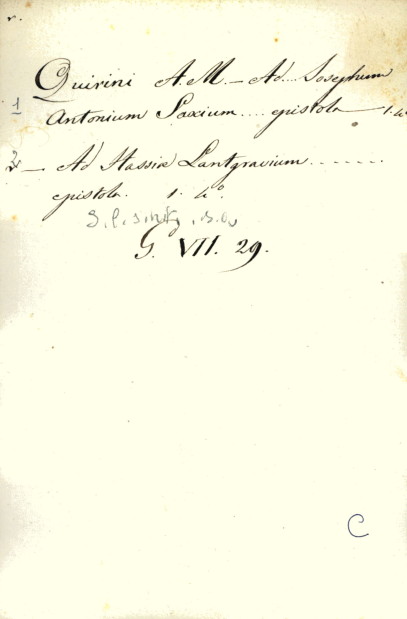 r.
Quirini A. M. — Ad... Josephum
1 Antonium Saxium .... epistola — 1. 4°
2 — Ad Hassiæ Lantgravium . . . . . .
epistola. 1. 4°.
S. l. s. n. t.
G. VII. 29.
C